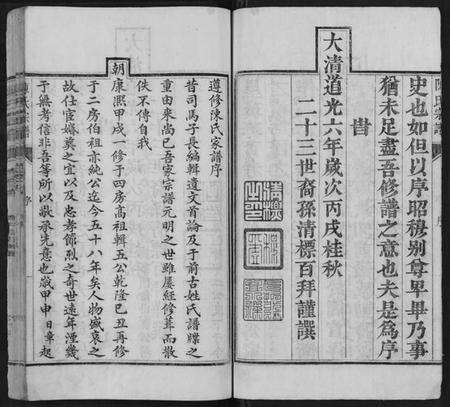 史也如但以序昭穆别尊卑畢乃事
猶未足盡吾修譜之意也夫是爲序
時
大清道光六年歲次丙戌桂秋
二十三世裔孫清標百拜謹撰
遵修陳氏家譜序
昔司馬子長編輯遺文首論及于前古姓氏譜牒之
重由來尚已吾家宗譜元明之世雖屡經修葺而散
佚不傳自我
朝康熙甲戌一修于四房高祖輯五公乾隆己丑再修
于二房伯祖亦純公迄今五十八年矣人物盛衰之
故仕宦婚冀之宜以及忠孝節烈之奇世遠年湮幾
于無考信非吾等所以敬承先意也歲甲申日章起
陳氏宗譜
序